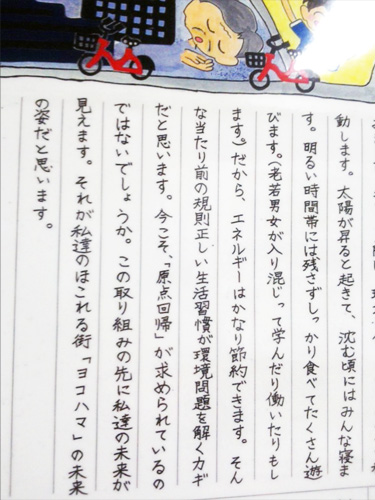 動します。太陽が昇ると起きて、沈む頃にはみんな寝ま
す。明るい時間帯には残さずしっかり食べてたくさん遊
びます。(老若男女が入り混じって学んだり働いたりもし
ます。)だから、エネルギーはかなり節約できます。そん
な当たり前の規則正しい生活習慣が環境問題を解くカギ
だと思います。今こそ、「原点回帰」が求められているの
ではないでしょうか。この取り組みの先に私達の未来が
見えます。それが私達のほこれる街「ヨコハマ」の未来
の姿だと思います。